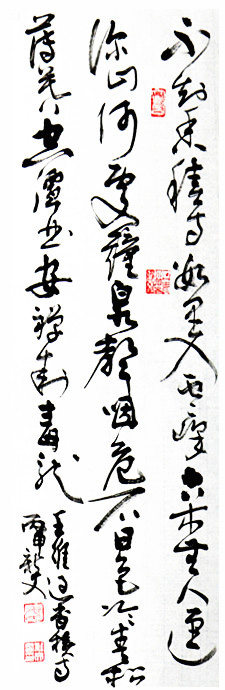 不知香積寺數里入雲峰古木無人逕
深山何處鐘泉聲咽危石日色冷青松
薄暮空潭曲安禪制毒龍
王維過香積寺
丙申